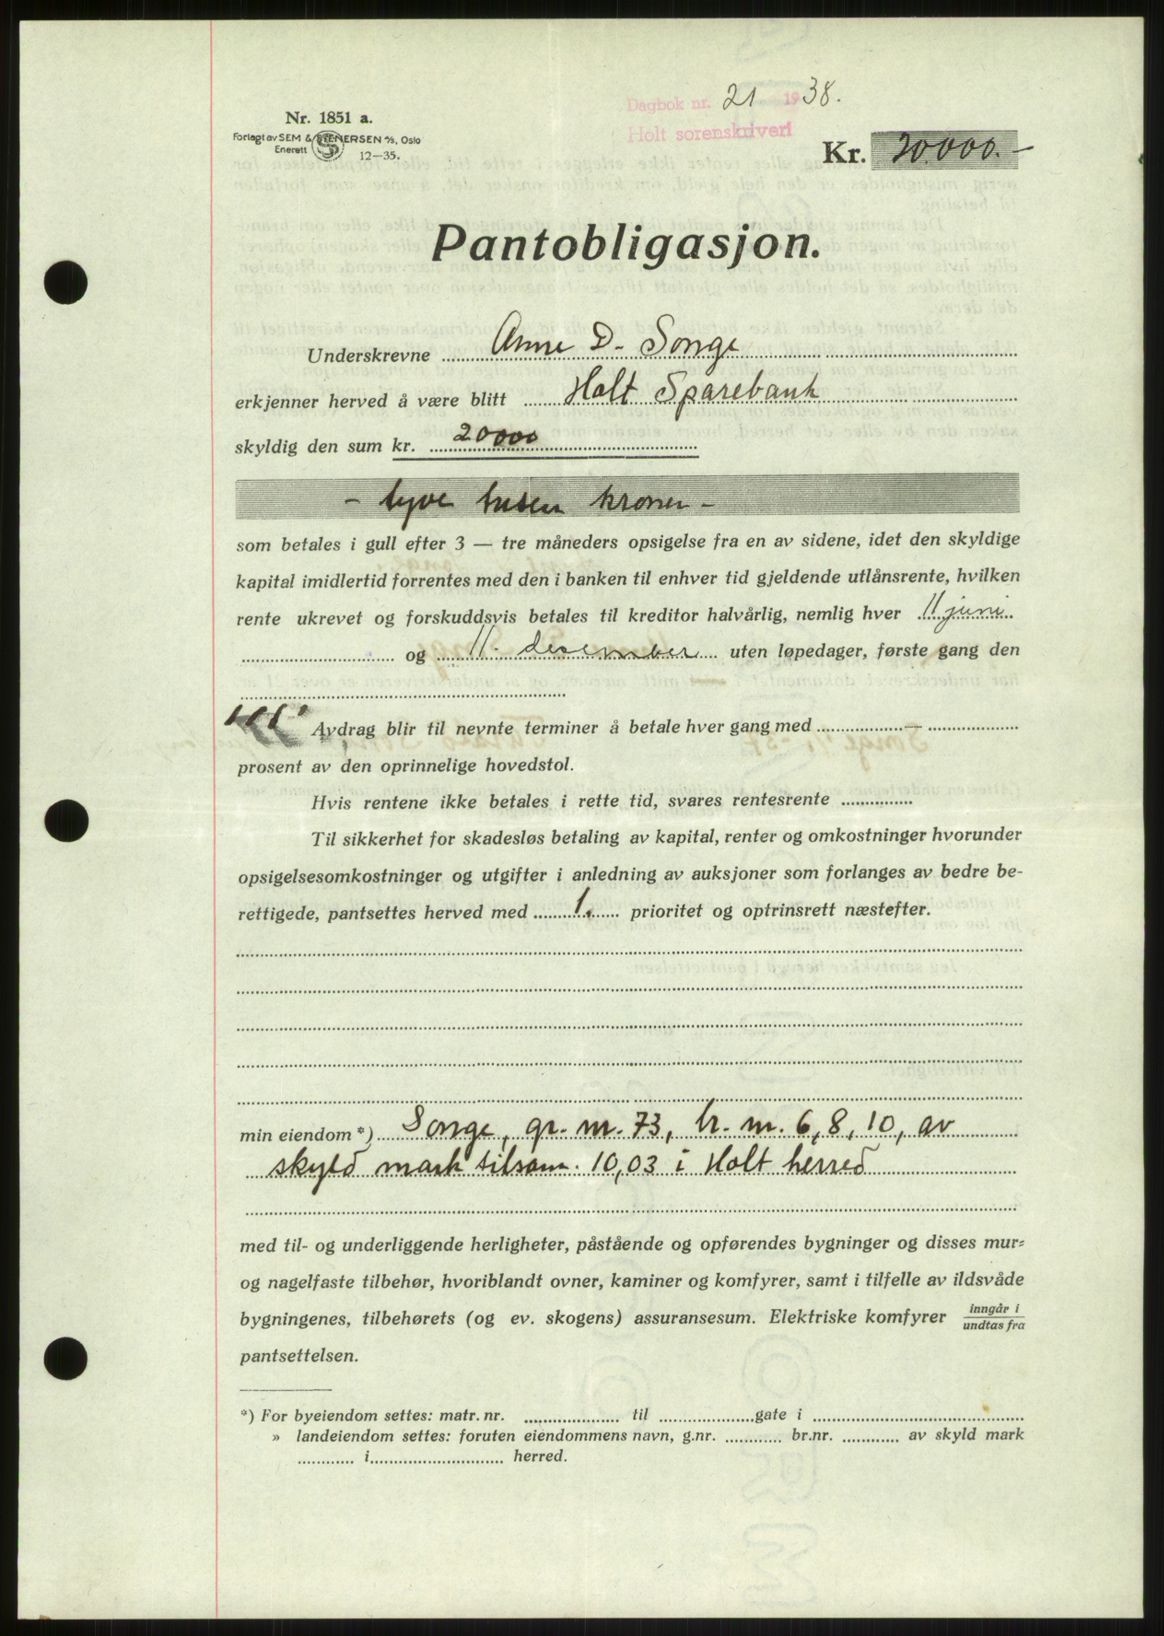 Dagbok nr. 21 1938.
Holt sorenskriveri
Nr. 1851 a.
Forlagt av SEM & STENERSEN A/S, Oslo
Enerett 12—35.
Kr. 20.000.—
Pantobligasjon.
Underskrevne Anne D. Songe
erkjenner herved å være blitt Holt Sparebank
skyldig den sum kr. 20000
- tyve tusen kroner -
som betales i gull efter 3 — tre måneders opsigelse fra en av sidene, idet den skyldige
kapital imidlertid forrentes med den i banken til enhver tid gjeldende utlånsrente, hvilken
rente ukrevet og forskuddsvis betales til kreditor halvårlig, nemlig hver 11 juni
og 11. desember uten løpedager, første gang den
Avdrag blir til nevnte terminer å betale hver gang med —
prosent av den oprinnelige hovedstol.
Hvis rentene ikke betales i rette tid, svares rentesrente
Til sikkerhet for skadesløs betaling av kapital, renter og omkostninger hvorunder
opsigelsesomkostninger og utgifter i anledning av auksjoner som forlanges av bedre be-
rettigede, pantsettes herved med 1. prioritet og optrinsrett næstefter.
min eiendom *) Songe, gr. nr. 73, br. nr. 6, 8, 10, av
skyld mark tilsam. 10,03 i Holt herred
med til- og underliggende herligheter, påstående og opførendes bygninger og disses mur-
og nagelfaste tilbehør, hvoriblandt ovner, kaminer og komfyrer, samt i tilfelle av ildsvåde
bygningenes, tilbehørets (og ev. skogens) assuransesum. Elektriske komfyrer inngår i
undtas fra
pantsettelsen.
*) For byeiendom settes: matr. nr. til gate i
» landeiendom settes: foruten eiendommens navn, g.nr. br.nr. av skyld mark
i herred.